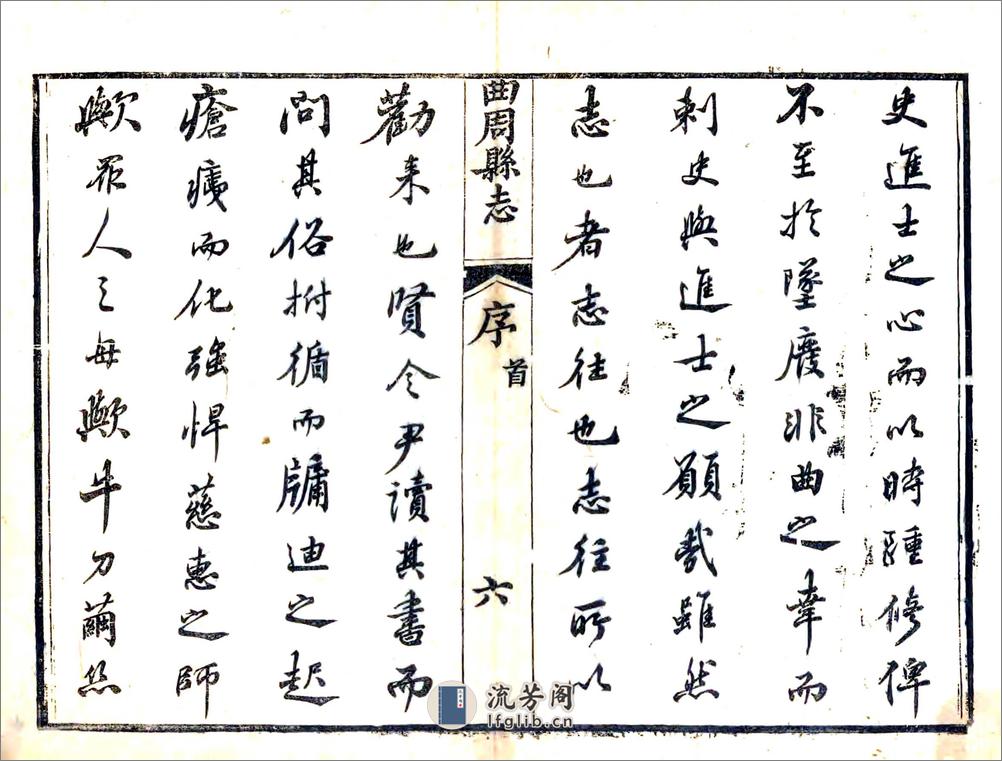 史進士之心而以時踵修俾
不至於墜廢非曲之幸而
刺史與進士之願哉雖然
志也者志往也志往所以
曲周縣志
序
首
六
勸来也賢令尹讀其書而
問其俗拊循而牖迪之起
瘡痍而化強悍慈惠之師
歟眾人之母歟牛刀繭絲
流芳阁
lfglib.cn